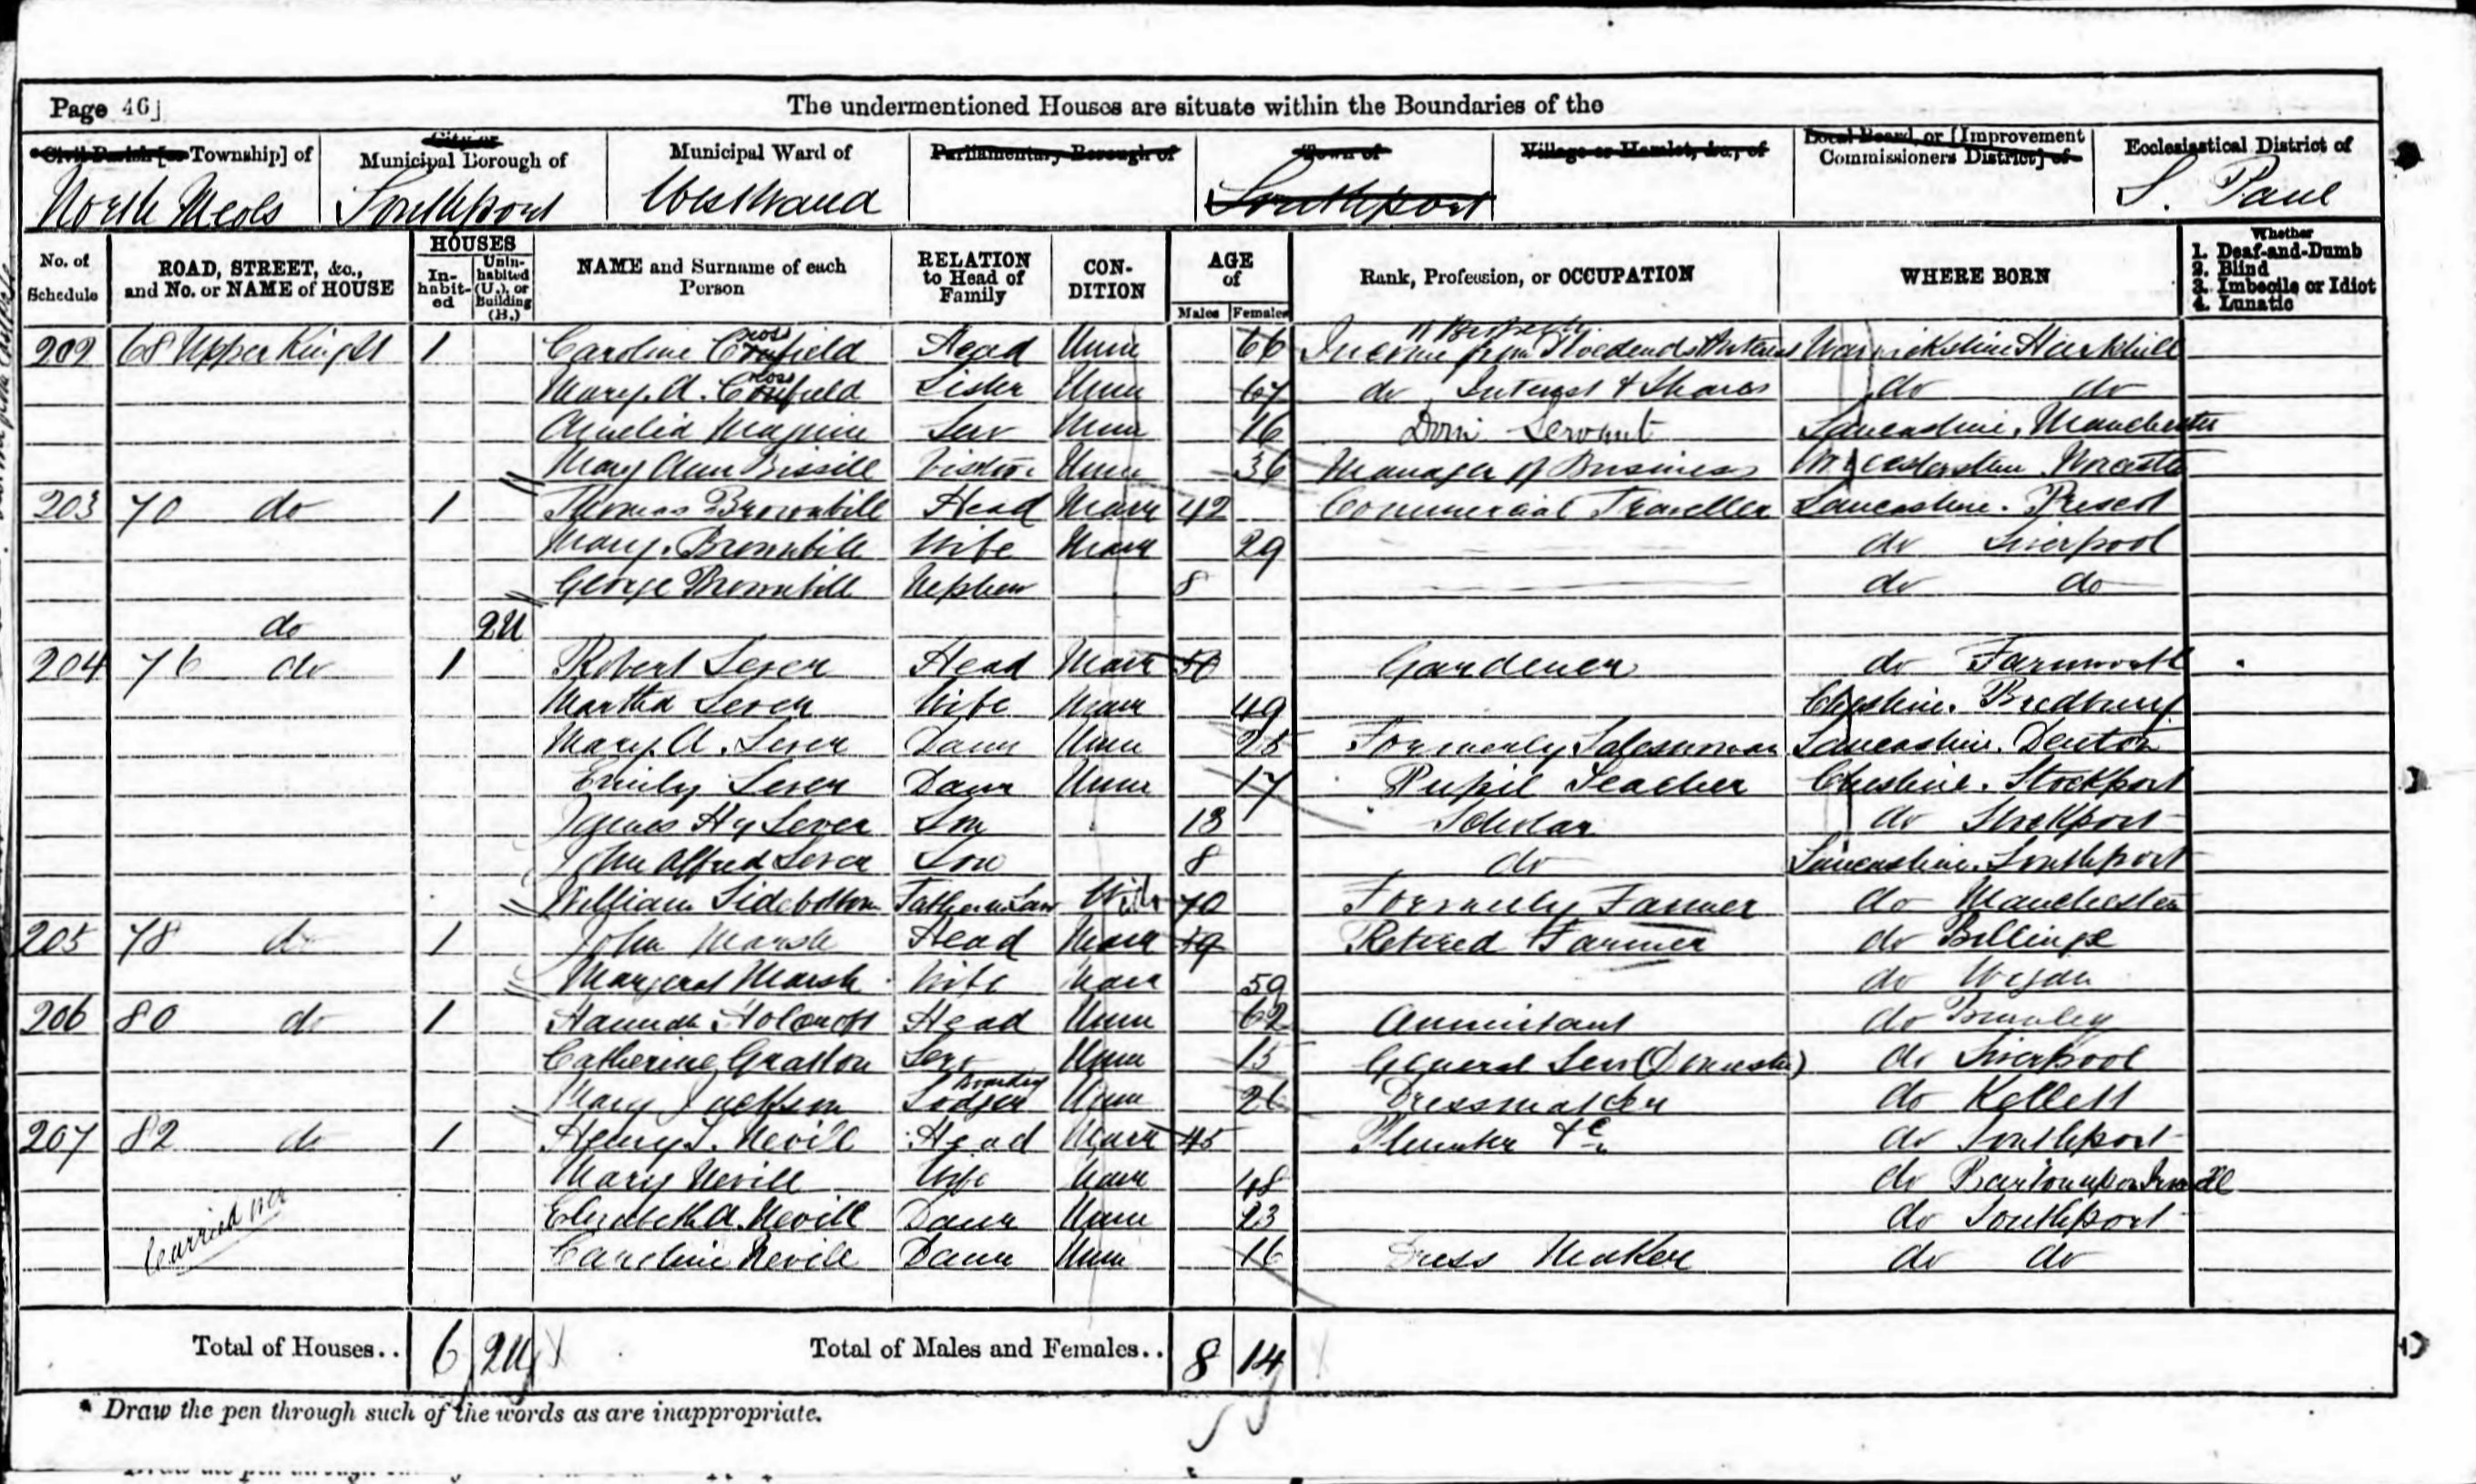 Page 46]
The undermentioned Houses are situate within the Boundaries of the
Civil Parish [or Township] of City or Municipal Borough of Municipal Ward of Parliamentary Borough of Town of Village or Hamlet, &c., of Local Board, or [Improvement Commissioners District] of Ecclesiastical District of
North Meols Southport West Ward Southport S. Paul
No. of Schedule ROAD, STREET, &c., and No. or NAME of HOUSE HOUSES In-habit-ed Unin-habited (U.), or Building (B.) NAME and Surname of each Person RELATION to Head of Family CON-DITION AGE of Males Females Rank, Profession, or OCCUPATION WHERE BORN Whether 1. Deaf-and-Dumb 2. Blind 3. Imbecile or Idiot 4. Lunatic
202 68 Upper King St 1 Caroline Crossfield Head Unm 66 Income from Dividends Interest Warwickshire
Mary. A. Crossfield Sister Unm 67 do Interest & Shares do do
Amelia Serv Unm 16 Dom Servant Lancashire, Manchester
Mary Ann Bissill Visitor Unm 36 Manager of Business Worcestershire Worcester
203 70 do 1 Thomas Brownbill Head Marr 42 Commercial Traveller Lancashire. Prescot
Mary. Brownbill Wife Marr 29 do Liverpool
George Brownbill Nephew 8 do do
do 2U
204 76 do 1 Robert Lever Head Marr 50 Gardener do Farnworth
Martha Lever Wife Marr 49 Cheshire. Bredbury
Mary. A. Lever Daur Unm 25 Formerly Saleswoman Lancashire. Denton
Emily Lever Daur Unm 17 Pupil Teacher Cheshire. Stockport
James Hy Lever Son 13 Scholar do Stockport
John Alfred Lever Son 8 do Lancashire. Southport
William Sidebottom Father in Law Wid 70 Formerly Farmer do Manchester
205 78 do 1 John Marsh Head Marr 59 Retired Farmer do Billinge
Margaret Marsh Wife Marr 59 do Wigan
206 80 do 1 Hannah Holcroft Head Unm 62 Annuitant do
Catherine Serv Unm 15 General Serv (Domestic) do Liverpool
Mary Jackson Lodger Boarder Unm 26 Dressmaker do Kellett
207 82 do 1 Henry Nevill Head Marr 45 Plumber &c do Southport
Mary Nevill Wife Marr 48 do Barton upon Irwell
Elizabeth A. Nevill Daur Unm 23 do Southport
Caroline Nevill Daur Unm 16 Dress Maker do do
Carried over
Total of Houses.. 6 2U Total of Males and Females.. 8 14
* Draw the pen through such of the words as are inappropriate.